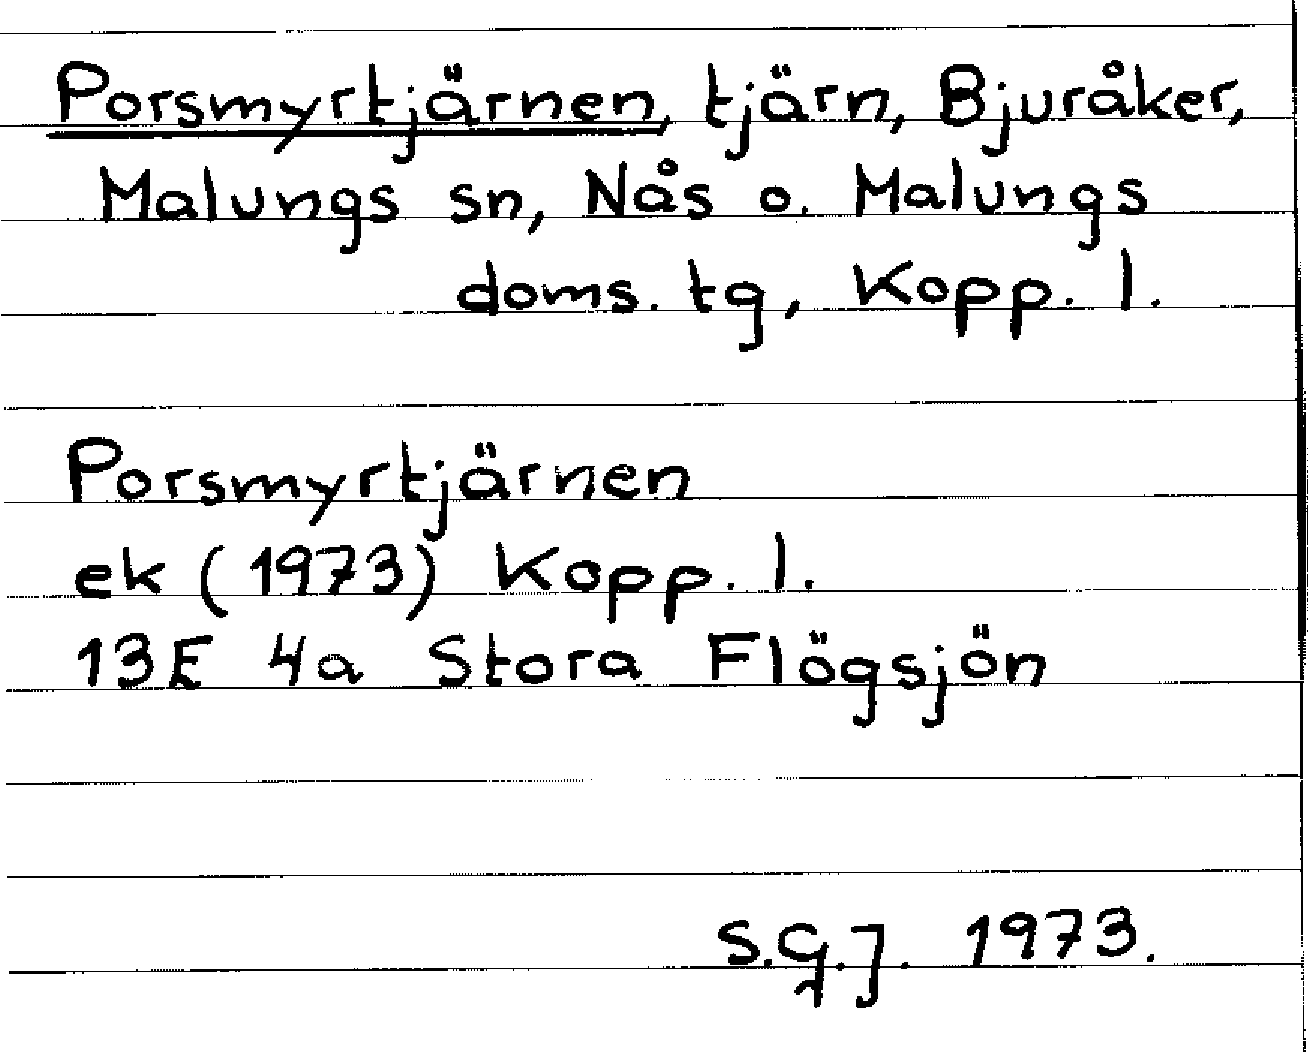 Porsmyrtjärnen, tjärn, Bjuråker,
Malungs sn, Nås o. Malungs
doms. tg, Kopp. l.
Porsmyrtjärnen
ek (1973) Kopp. l.
13E 4a Stora Flögsjön
S.G.J. 1973.